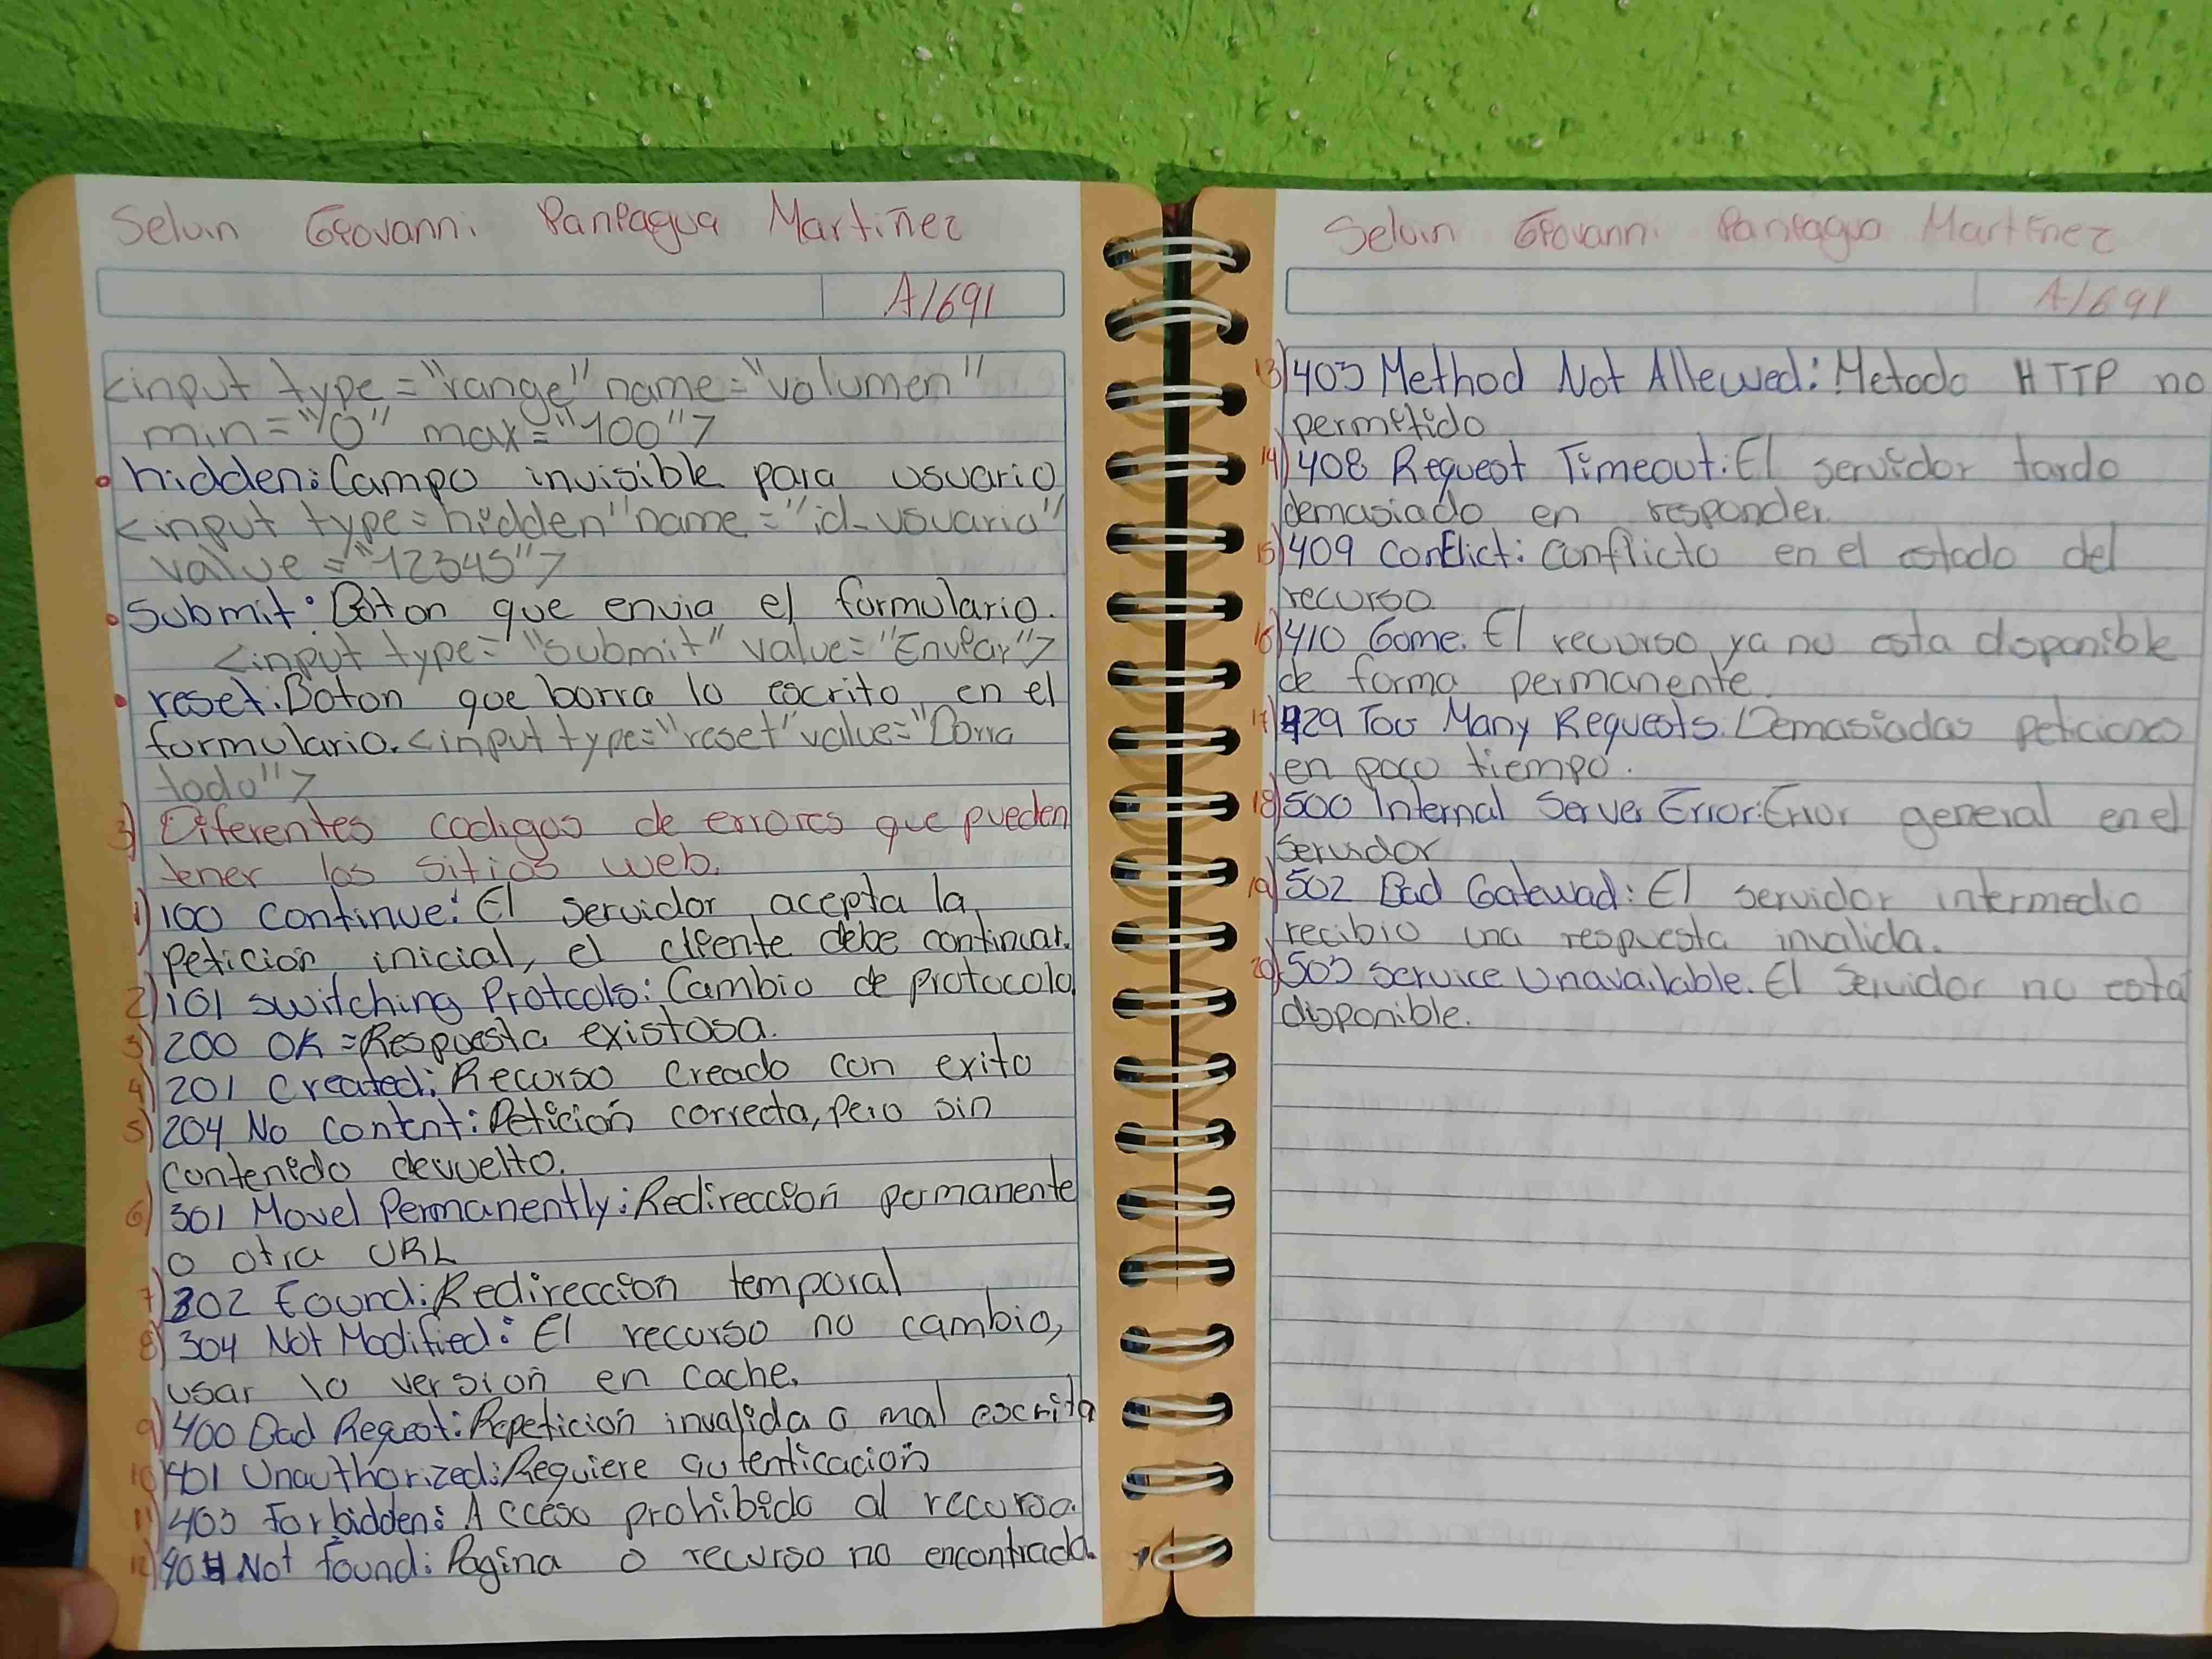 Seluin Giovanni Paniagua Martinez
A1691
<input type="range" name="volumen"
min="0" max="100">
• hidden: Campo invisible para usuario
<input type=hidden" name="id_usuario"
value="12345">
• Submit: Boton que envia el formulario.
<input type="submit" value="Enviar">
• reset: Boton que borra lo escrito en el
formulario. <input type="reset" value="Borra
todo">
3) Diferentes codigos de errores que pueden
tener los sitios web.
1) 100 Continue: El servidor acepta la
petición inicial, el cliente debe continuar.
2) 101 switching Protcols: Cambio de protocolo
3) 200 OK = Respuesta existosa.
4) 201 Created: Recurso creado con exito
5) 204 No content: Petición correcta, pero sin
contenido devuelto.
6) 301 Movel Permanently: Redirección permanente
o otra URL
7) 302 Found: Redireccion temporal
8) 304 Not Modified: El recurso no cambio,
usar lo version en cache.
9) 400 Bad Request: Repetición invalida o mal escrita
10) 401 Unauthorized: Requiere autenticación
11) 403 Forbidden: Acceso prohibido al recurso.
12) 404 Not found: Pagina o recurso no encontrado.
Seluin Giovanni Paniagua Martinez
A1691
13) 403 Method Not Allewed: Metodo HTTP no
permitido
14) 408 Request Timeout: El servidor tardo
demasiado en responder.
15) 409 Conflict: Conflicto en el estado del
recurso
16) 410 Gome. El recurso ya no esta disponible
de forma permanente.
17) 429 Too Many Requests. Demasiadas peticiones
en poco tiempo.
18) 500 Internal Server Error: Error general en el
servidor
19) 502 Bad Gatewad: El servidor intermedio
recibio una respuesta invalida.
20) 503 Service Unavailable. El servidor no esta
disponible.